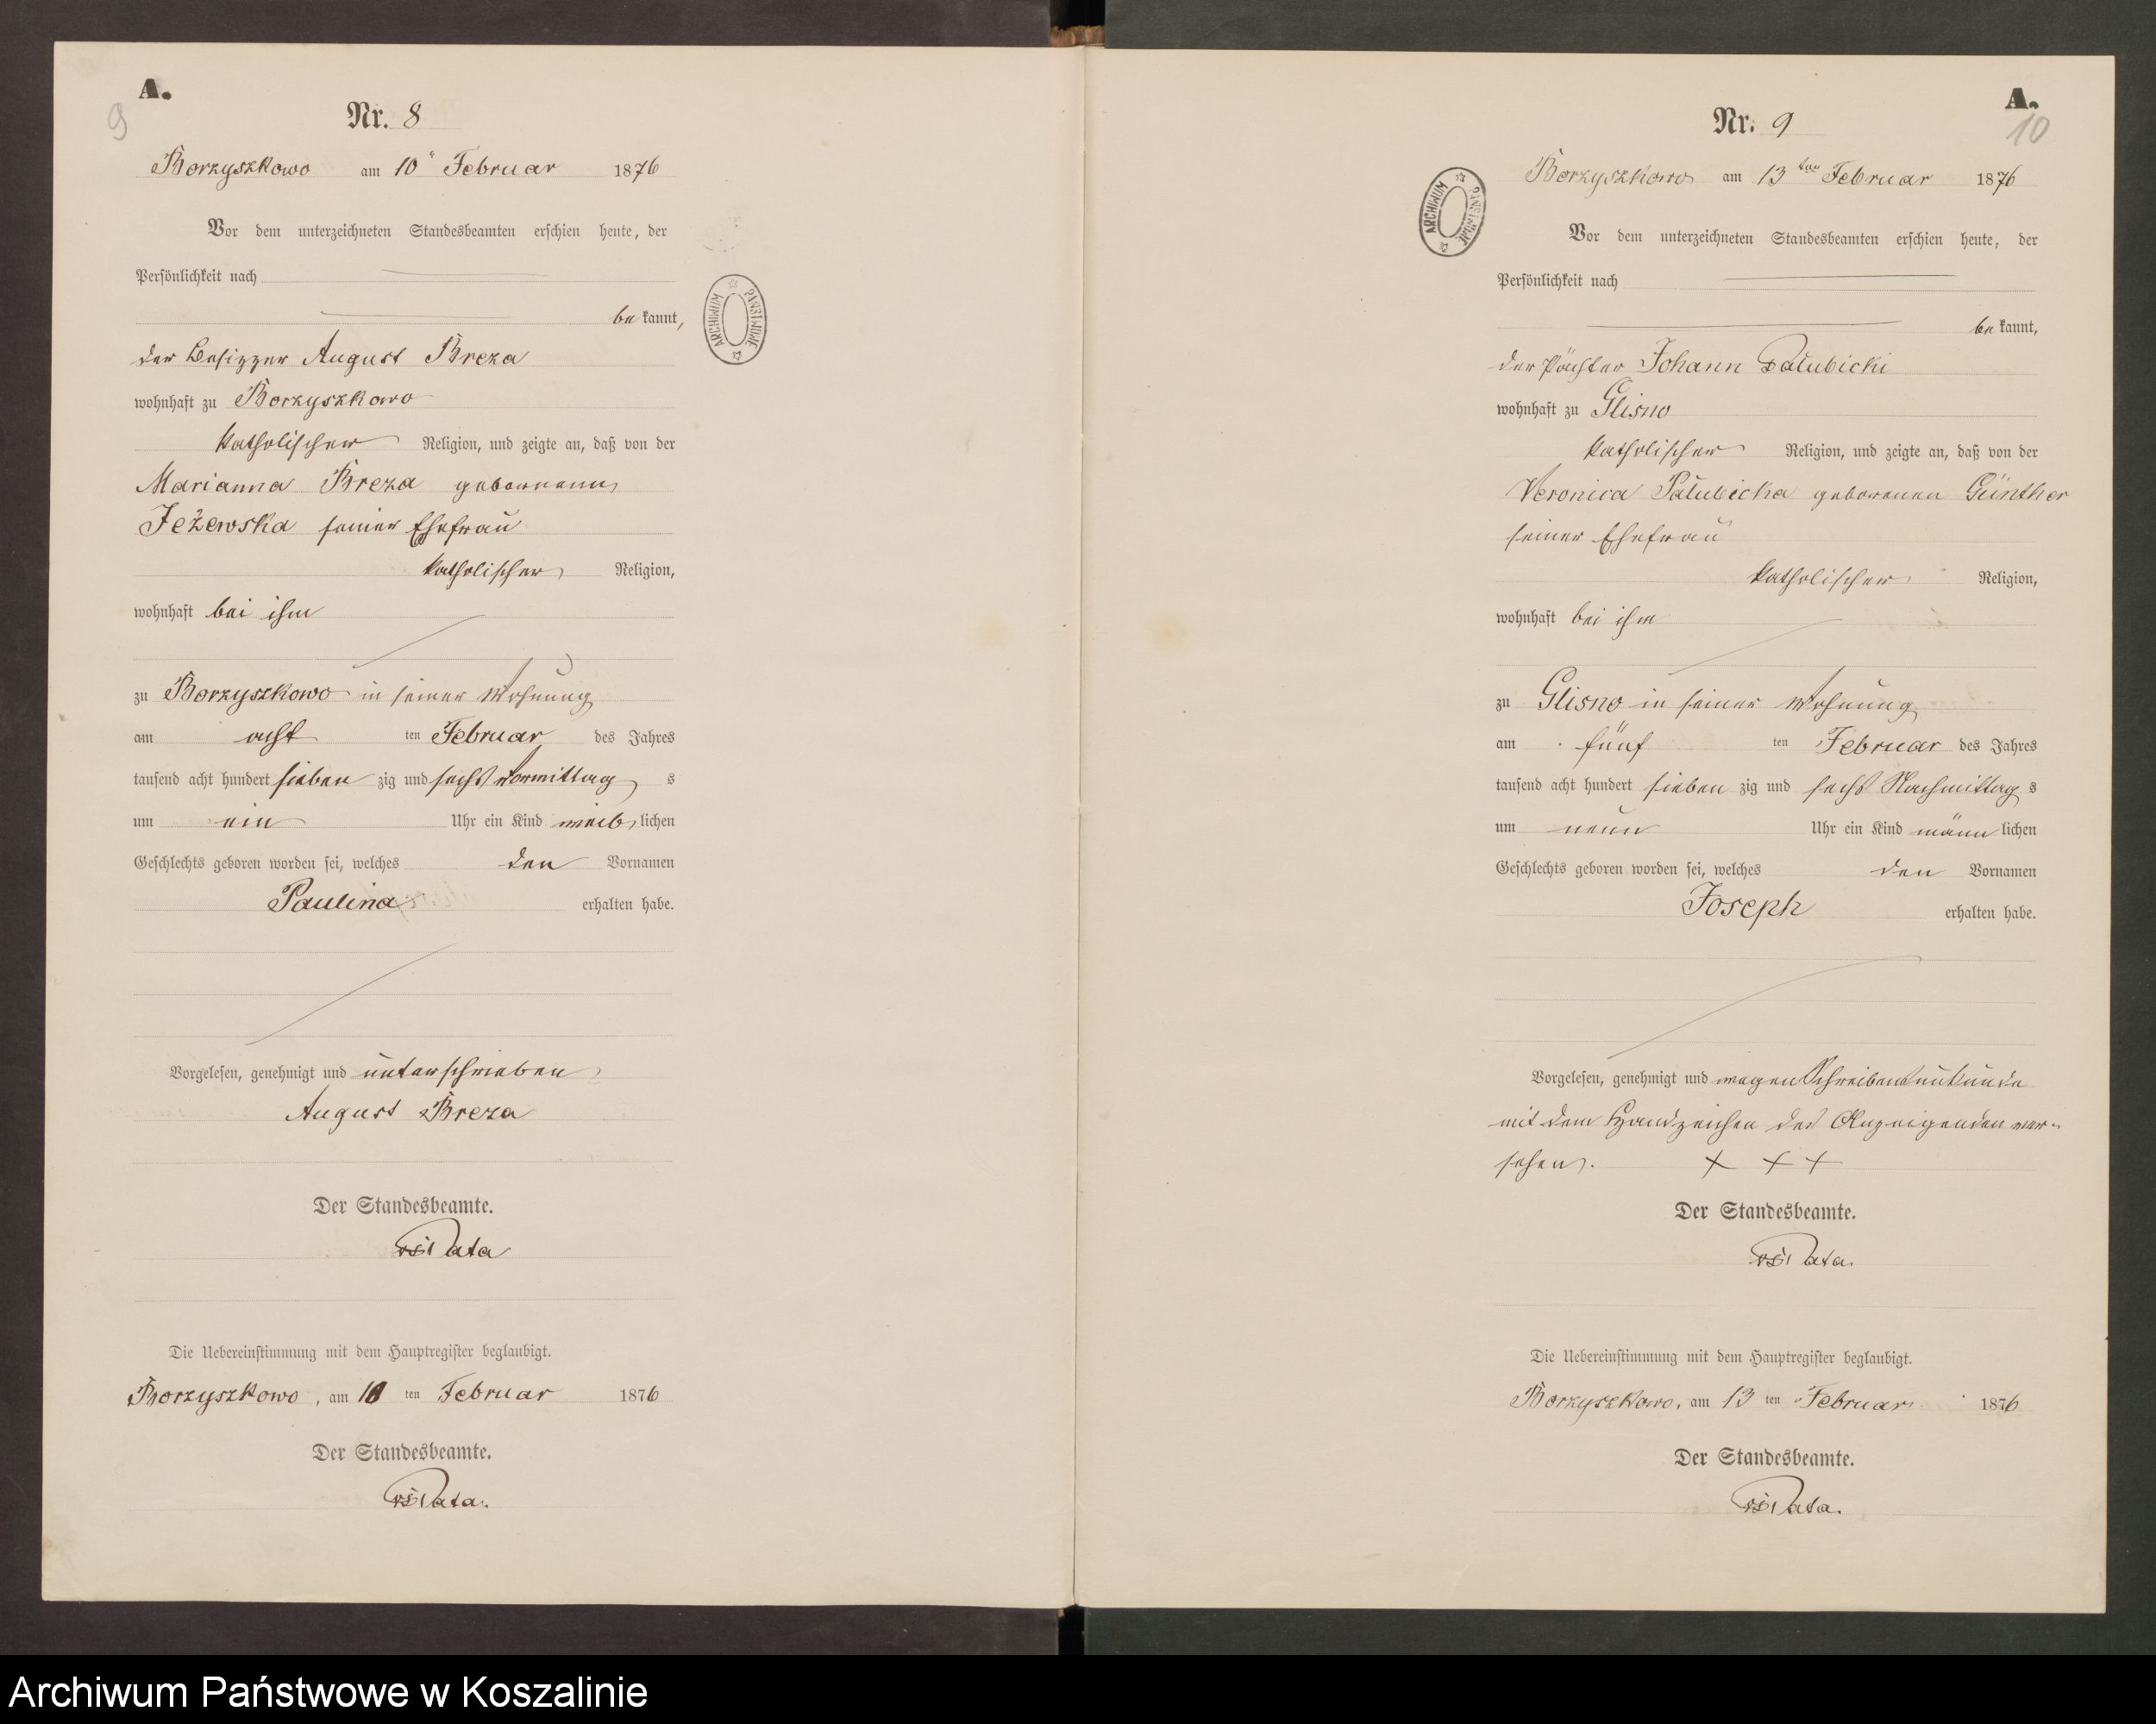 A.
9
Nr. 8
Borzyszkowo am 10" Februar 1876
Vor dem unterzeichneten Standesbeamten erschien heute, der
Persönlichkeit nach
be kannt,
der Besizzer August Breza
wohnhaft zu Borzyszkowo
katholischer Religion, und zeigte an, daß von der
Marianna Breza geborenen
Jeżewska seiner Ehefrau
katholischer Religion,
wohnhaft bei ihm
zu Borzyszkowo in seiner Wohnung
am acht ten Februar des Jahres
tausend acht hundert sieben zig und sechs Vormittag s
um ein Uhr ein Kind weib lichen
Geschlechts geboren worden sei, welches den Vornamen
Paulina erhalten habe.
Vorgelesen, genehmigt und unterschrieben
August Breza
Der Standesbeamte.
Pata
Die Uebereinstimmung mit dem Hauptregister beglaubigt.
Borzyszkowo, am 10 ten Februar 1876
Der Standesbeamte.
Pata.
ARCHIWUM PAŃSTWOWE
A.
10
Nr. 9
Borzyszkowo am 13 ten Februar 1876
ARCHIWUM PAŃSTWOWE
Vor dem unterzeichneten Standesbeamten erschien heute, der
Persönlichkeit nach
be kannt,
der Pächter Johann Pałubicki
wohnhaft zu Glisno
katholischer Religion, und zeigte an, daß von der
Veronica Pałubicka geborenen Günther
seiner Ehefrau
katholischer Religion,
wohnhaft bei ihm
zu Glisno in seiner Wohnung
am fünf ten Februar des Jahres
tausend acht hundert sieben zig und sechs Nachmittag s
um neun Uhr ein Kind männ lichen
Geschlechts geboren worden sei, welches den Vornamen
Joseph erhalten habe.
Vorgelesen, genehmigt und wegen Schreibensunkunde
mit dem Handzeichen des Anzeigenden ver-
sehen. + + +
Der Standesbeamte.
Pata.
Die Uebereinstimmung mit dem Hauptregister beglaubigt.
Borzyszkowo, am 13 ten Februar 1876
Der Standesbeamte.
Pata.
Archiwum Państwowe w Koszalinie